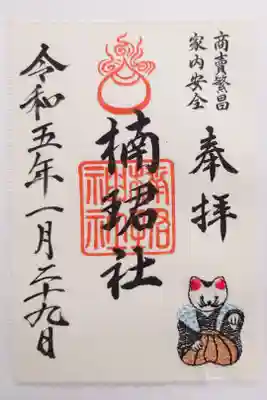 商賣繁昌
家内安全
奉拝
楠珺社
楠珺社神社
令和五年一月二十九日